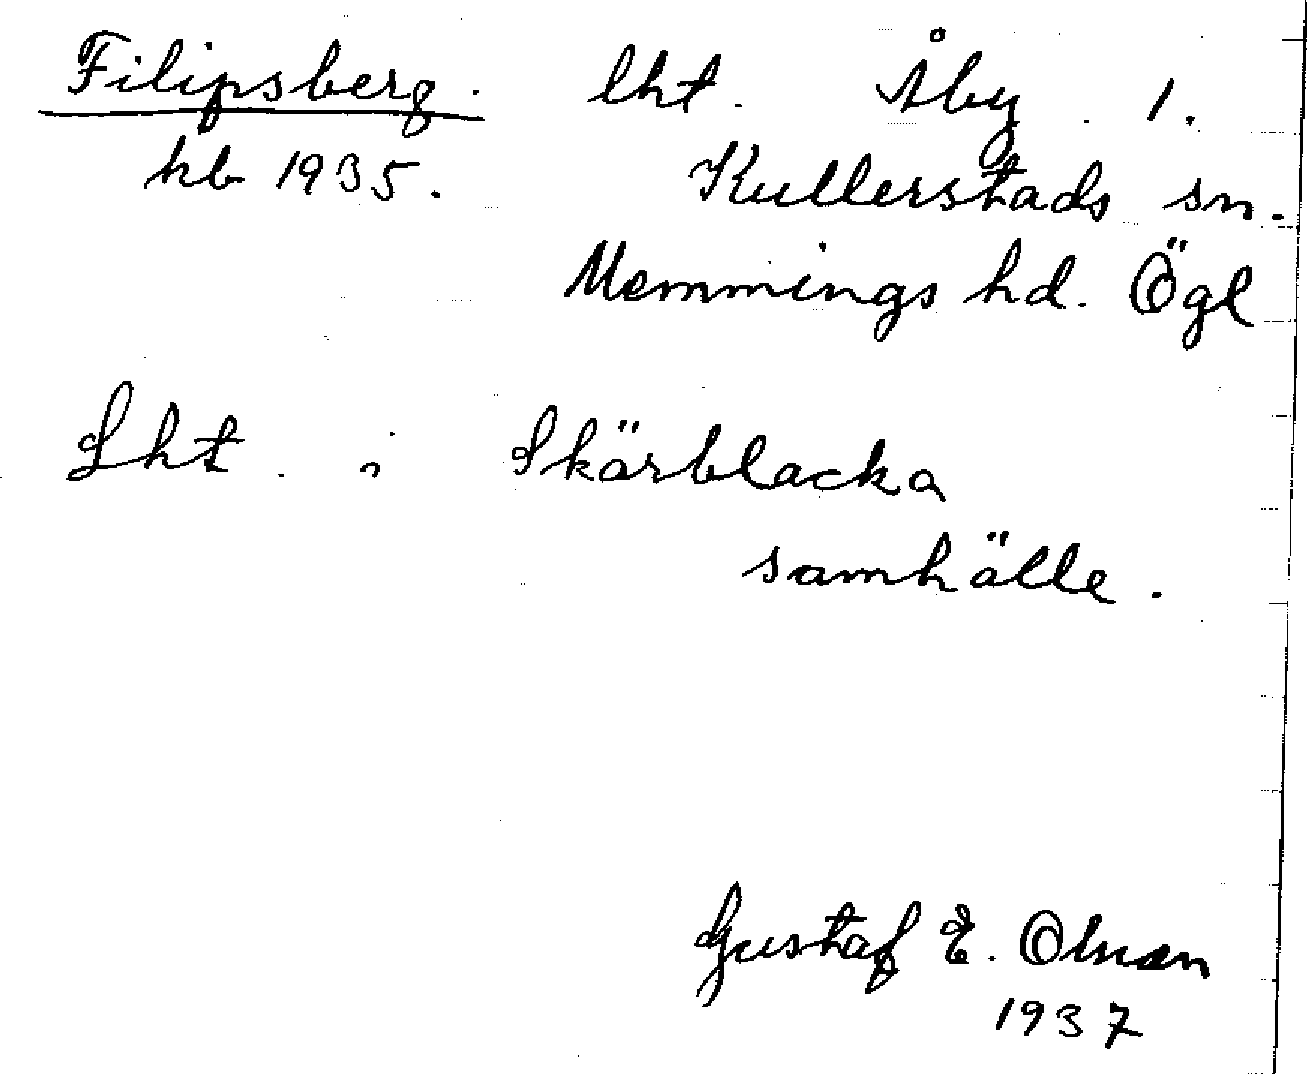 Filipsberg. lht. Åby 1.
kb 1935. Kullerstads sn.
Memmings hd. Ögl
Lht. i Skärblacka
samhälle.
Gustaf E. Olsson
1937